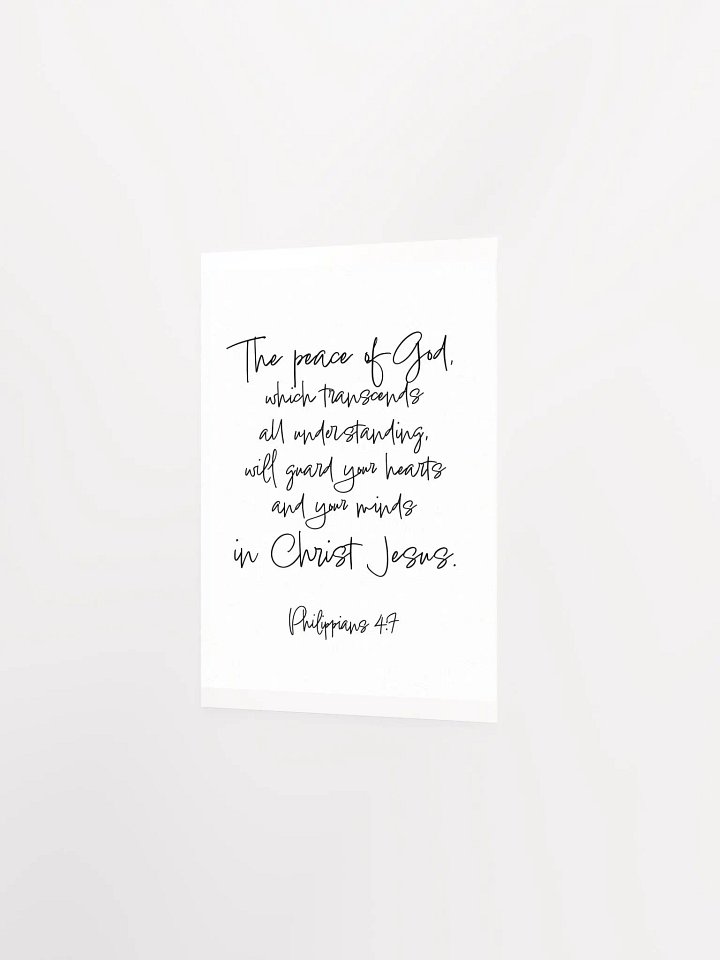 The peace of God,
which transcends
all understanding,
will guard your hearts
and your minds
in Christ Jesus.
Philippians 4:7